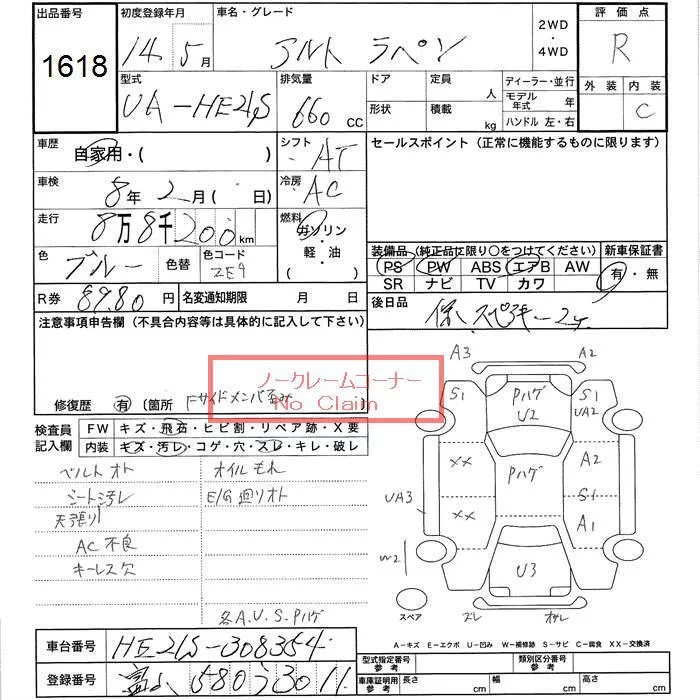 出品番号 初度登録年月 車名・グレード 2WD・4WD 評価点
1618 14 5月 アルト ラペン R
型式 排気量 ドア 定員 人 ディーラー・並行 外装 内装
UA-HE21S 660 CC 形状 積載 kg モデル年式 年 C
ハンドル 左・右
車歴 自家用・( ) シフト AT セールスポイント (正常に機能するものに限ります)
車検 8年 2月( 日) 冷房 AC
走行 8万8千200km 燃料 ガソリン・軽・油
色 ブルー 色替 色コード ZE9
装備品 (純正品に限り○をつけてください) 新車保証書
PS PW ABS エアB AW 有・無
SR ナビ TV カワ
R券 8980 名変通知期限 月 日 後日品 保、スペアキー2ケ
注意事項申告欄 (不具合内容等は具体的に記入して下さい)
ノークレームコーナー
No Claim
修復歴 有 (箇所 Fサイドメンバ歪み )
検査員記入欄 FW キズ・飛石・ヒビ割・リペア跡・X要
内装 キズ・汚レ・コゲ・穴・スレ・キレ・破レ
ベルト オト オイルもれ
シート汚レ E/G廻りオト
天張り
AC不良
キーレス欠
各A.U.S.Pハゲ
A3 A2
S1 Pハゲ U2 S1 UA2
XX Pハゲ A2
UA3 XX S1
A1
W2 U3
スペア ズレ オサレ
A-キズ E-エクボ U-凹み W-補修跡 S-サビ C-腐食 XX-交換済
車台番号 HE21S-308354
登録番号 富山 580 う 30 11
型式指定番号 参考 類別区分番号 参考
車庫証明用 参考 長さ cm 幅 cm 高さ cm